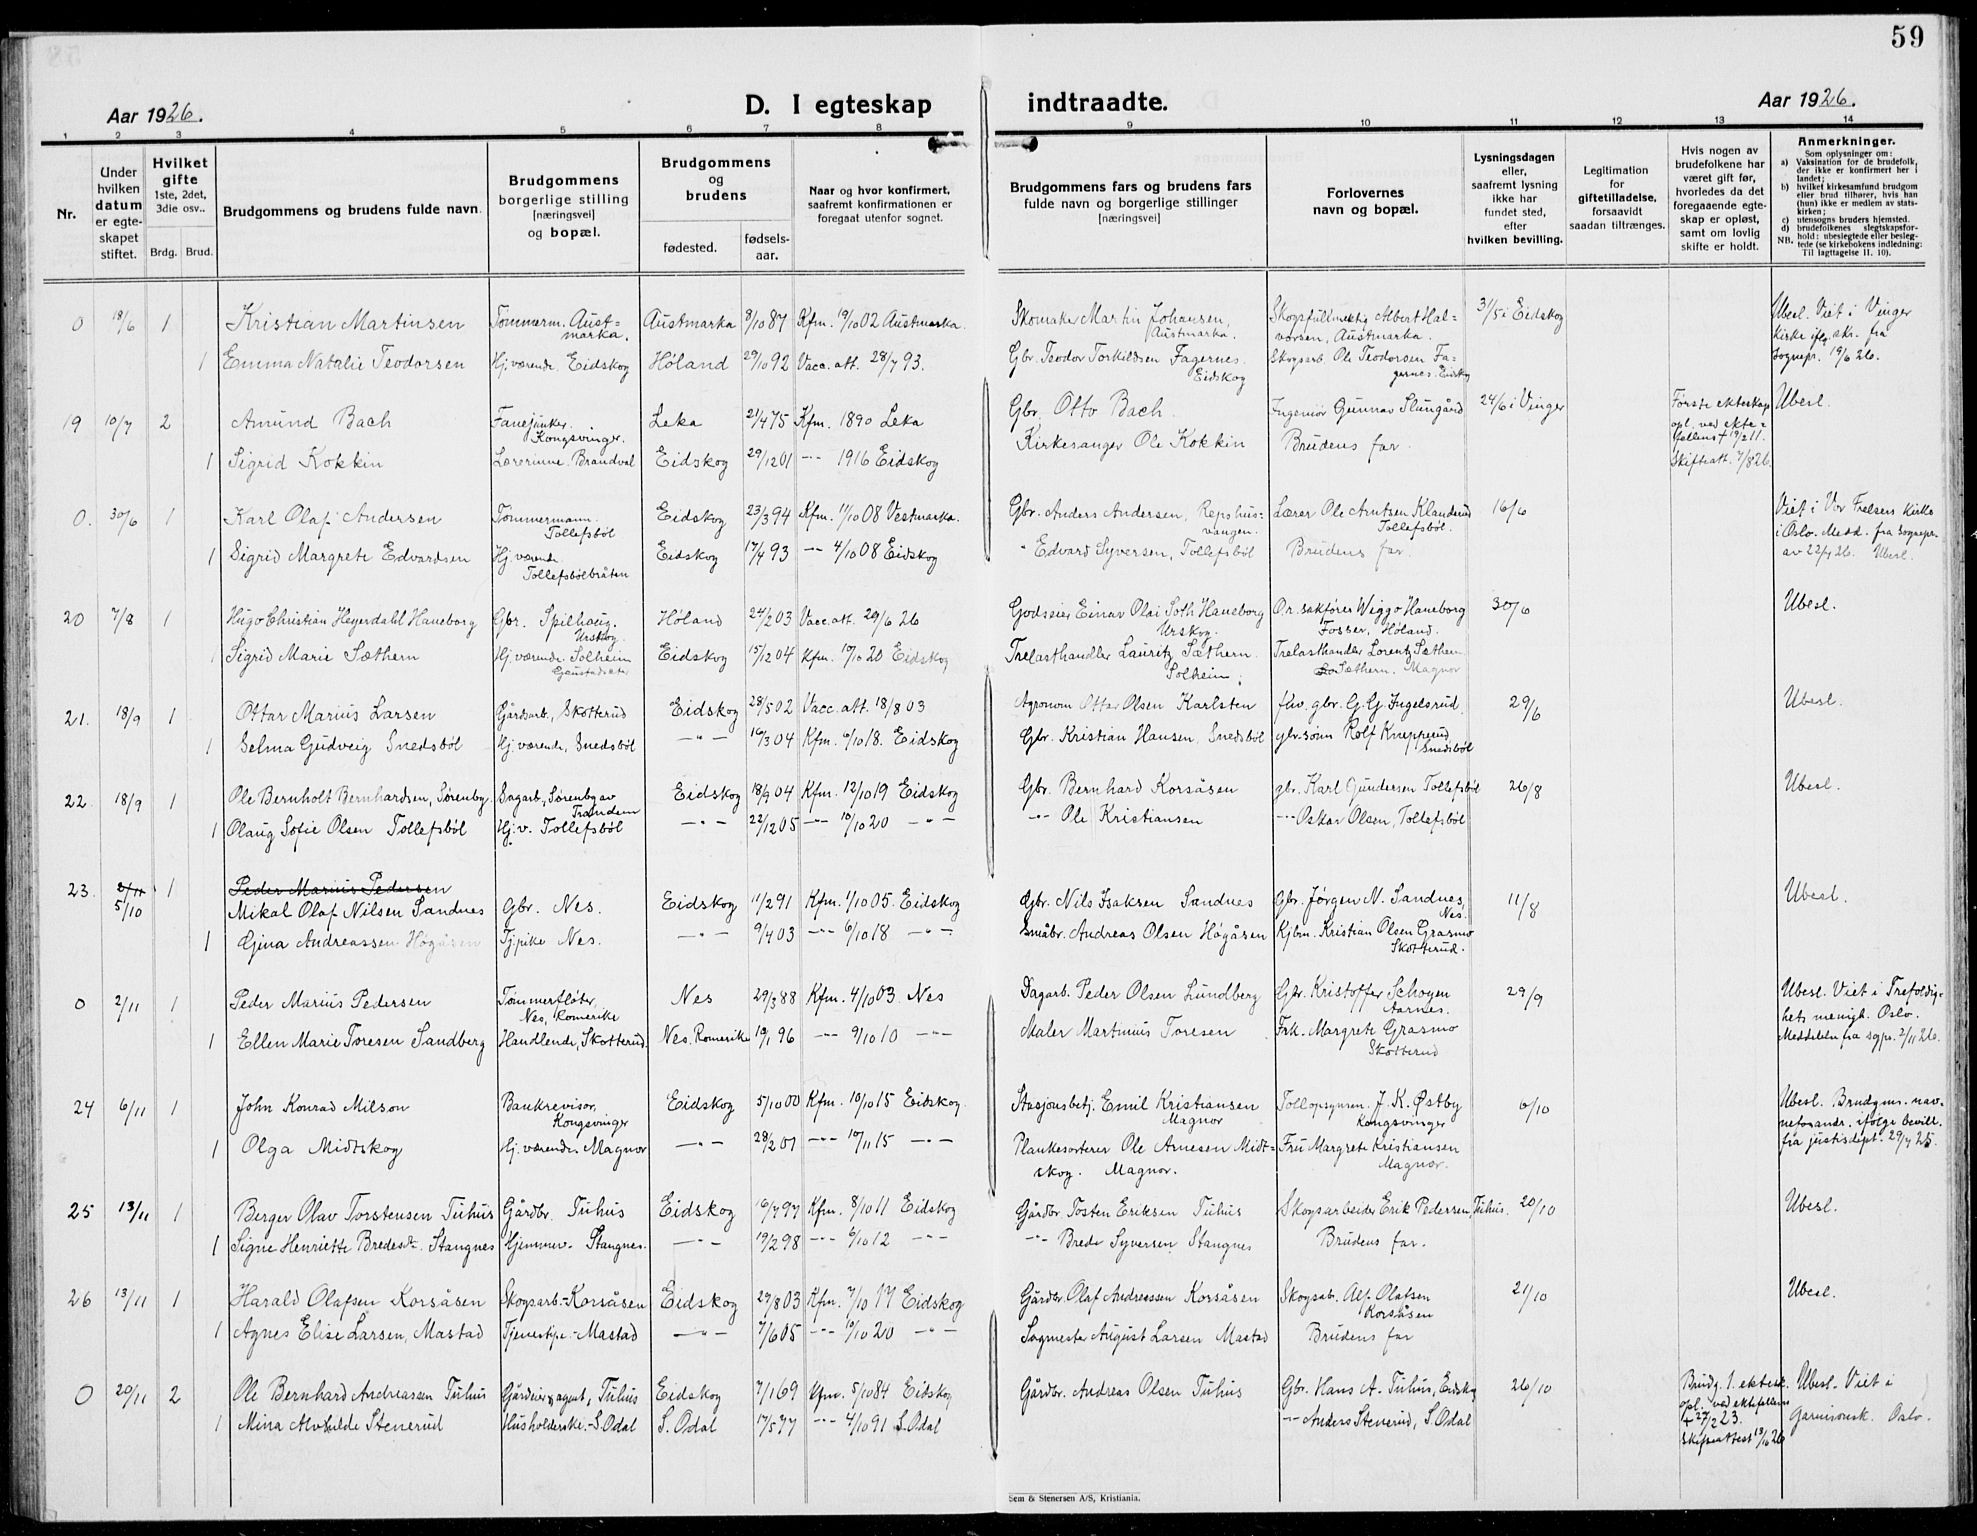 59
Aar 1926.
D. I egteskap indtraadte.
Aar 1926.
1 2 3 4 5 6 7 8 9 10 11 12 13 14
Nr.
Under hvilken datum er egteskapet stiftet.
Hvilket gifte 1ste, 2det, 3die osv..
Brdg. Brud.
Brudgommens og brudens fulde navn.
Brudgommens borgerlige stilling [næringsvei] og bopæl.
Brudgommens og brudens
fødested. fødselsaar.
Naar og hvor konfirmert, saafremt konfirmationen er foregaat utenfor sognet.
Brudgommens fars og brudens fars fulde navn og borgerlige stillinger [næringsvei]
Forlovernes navn og bopæl.
Lysningsdagen eller, saafremt lysning ikke har fundet sted, efter hvilken bevilling.
Legitimation for giftetilladelse, forsaavidt saadan tiltrænges.
Hvis nogen av brudefolkene har været gift før, hvorledes da det foregaaende egteskap er opløst, samt om lovlig skifte er holdt.
Anmerkninger.
Som oplysninger om:
a) Vaksination for de brudefolk, der ikke er konfirmert her i landet;
b) hvilket kirkesamfund brudgom eller brud tilhører, hvis han (hun) ikke er medlem av statskirken;
c) utensogns bruders hjemsted.
d) brudefolkenes slegtskapsforhold: ubeslegtede eller beslegtede (se kirkebokens indledning:
NB. Til Iagttagelse II. 10).
0 18/6 1 Kristian Martinsen Tømmerm. Austmarka. Austmarka 8/10 87 Kfm. 19/10 02 Austmarka. Skomaker Martin Johansen, Austmarka. Skogsfullmektig Albert Halvorsen, Austmarka. 31/5 i Eidskog Ubesl. Viet i Vinger kirke iflg. skr. fra sognepr. 19/6 26.
1 Emma Natalie Teodorsen Hj.værende Eidskog Høland 29/10 92 Vacc. att. 28/7 93. Gbr. Teodor Torkildsen Fagernes. Eidskog Skogsarb. Ole Teodorsen Fagernes. Eidskog
19 10/7 2 Amund Bach Fanejunker. Kongsvinger. Leka 21/4 75 Kfm. 1890 Leka Gbr. Otto Bach. Ingeniør Gunnar Slungård 24/6 i Vinger Første ekteskap opl. ved ektefellens † 19/2 11. Skifteatt. 7/8 26. Ubesl.
1 Sigrid Kokkin Lærerinne Brandval Eidskog 29/12 01 -"- 1916 Eidskog Kirkesanger Ole Kokkin Brudens far.
0. 30/6 1 Karl Olaf Andersen Tømmermann. Tollefsbøl Eidskog 23/3 94 Kfm. 11/10 08 Vestmarka. Gbr. Anders Andersen, Repshusvangen. Lærer Ole Arntsen Klanderud Tollefsbøl. 16/6 Viet i Vor Frelsers kirke i Oslo. Medd. fra sognepr. av 22/7 26. Ubesl.
1 Sigrid Margrete Edvardsen Hj.værende. Tollefsbølbråten Eidskog 17/4 93 -"- 4/10 08 Eidskog " Edvard Syversen, Tollefsbøl Brudens far.
20 7/8 1 Hugo Christian Heyerdahl Haneborg Gbr. Spilhaug. Urskog. Høland 24/2 03 Vacc. att. 29/6 26 Godseier Einar Olai Soth Haneborg Urskog. O.r. sakfører Wiggo Haneborg Fosser, Høland. 30/6 Ubesl.
1 Sigrid Marie Sæthern Hj.værende. Solheim Eidskog 15/12 04 Kfm. 10/10 20 Eidskog Trelasthandler Lauritz Sæthern. Solheim. Trelasthandler Lorentz Sæthern Sæthern. Magnor
21. 18/9 1 Ottar Marius Larsen Gårdsarb., Skotterud Eidskog 28/5 02 Vacc. att. 18/8 03 Agronom Ottar Olsen Karlsten fhv. gbr. G. G. Ingelsrud 29/6 Ubesl.
1 Selma Gudveig Snedsbøl Hj.værende, Snedsbøl -"- 16/3 04 Kfm. 6/10 18. Eidskog Gbr. Kristian Hansen, Snedsbøl gbr.sønn Rolf Knapperud Snedsbøl
22. 18/9 1 Ole Bernholt Bernhardsen, Sørenby. Dagarb., Sørenby av Trandem Eidskog 18/9 04 Kfm. 12/10 19 Eidskog Gbr. Bernhard Korsåsen gbr. Karl Gundersen Tollefsbøl 26/8 Ubesl.
1 Olaug Sofie Olsen Tollefsbøl Hj.v. Tollefsbøl -"- 22/12 05 -"- 10/10 20 -"- -"- Ole Kristiansen -"- Oskar Olsen, Tollefsbøl
23. 2/11 5/10 1 Peder Marius Pedersen
Mikal Olaf Nilsen Sandnes Gbr. Nes. Eidskog 11/2 91 Kfm. 1/10 05. Eidskog Gbr. Nils Isaksen Sandnes Gbr. Jørgen N. Sandnes, Nes. 11/8 Ubesl.
1 Gina Andreassen Høgåsen Tj.pike Nes. -"- 9/4 03 -"- 6/10 18 -"- Småbr. Andreas Olsen Høgåsen Kjbm. Kristian Olsen Grasmo Skotterud.
0 2/11 1 Peder Marius Pedersen Tømmerfløter. Nes, Romerike Nes 29/3 88 Kfm. 4/10 03. Nes Dagarb. Peder Olsen Lundberg Gbr. Kristoffer Schøyen Aarnes. 29/9 Ubesl. Viet i Trefoldighets menigh. Oslo. Meddelen fra sgpr. 2/11 26.
1 Ellen Marie Toresen Sandberg Handlende, Skotterud. Nes. Romerike 19/1 96 -"- 9/10 10 -"- Maler Martinius Toresen Frk. Margrete Grasmo Skotterud
24 6/11 1 John Konrad Milson Bankrevisor, Kongsvinger Eidskog 5/10 00 Kfm. 10/10 15 Eidskog. Stasjonsbetj. Emil Kristiansen Magnor Tollopsynsm. J. K. Østby Kongsvinger 6/10 Ubesl. Brudgms. navneforandr. ifølge bevill. fra justisdept. 29/7 25.
1 Olga Midtskog Hj.værende. Magnor -"- 28/2 01 -"- 10/11 15 -"- Plankesorterer Ole Arnesen Midtskog. Magnor. Fru Margrete Kristiansen Magnor.
25 13/11 1 Berger Olav Torstensen Tuhus Gårdbr. Tuhus Eidskog 16/7 97 Kfm. 8/10 11 Eidskog Gårdbr. Tosten Eriksen Tuhus Skogsarbeider Erik Pedersen, Tuhus. 20/10 Ubesl.
1 Signe Henriette Bredesdt. Stangnes Hjemmev. Stangnes. -"- 19/2 98 -"- 6/10 12 -"- -"- Brede Syversen Stangnes Brudens far.
26 13/11 1 Harald Olafsen Korsåsen Skogsarb.-Korsåsen Eidskog 29/8 03 Kfm. 7/10 17 Eidskog Gårdbr. Olaf Andreassen Korsåsen Skogsab. Alf Olafsen Korsåsen 21/10 Ubesl.
1 Agnes Elise Larsen, Mastad Tjenestepi.-Mastad -"- 7/6 05 -"- 10/10 20 -"- Sagmester August Larsen Mastad Brudens far
0 20/11 2 Ole Bernhard Andreassen Tuhus Gårdeier & agent, Tuhus Eidskog 7/1 69 Kfm. 5/10 84 Eidskog Gårdbr. Andreas Olsen Tuhus Gbr. Hans A. Tuhus, Eidskog 26/10 Brudg. 1. ektesk. opl. ved ektefellens † 27/2 23. Skifteattest 13/10 26 Ubesl. Viet i Garnisonsk. Oslo.
1 Mina Alvhilde Stenerud Husholderske.-S. Odal S. Odal 17/5 77 -"- 4/10 91 S. Odal -"- Anders Stenerud, S. Odal
Sem & Stenersen A/S, Kristiania.